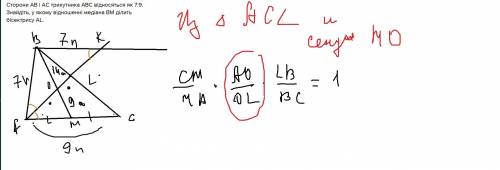 Сторони AB і AC трикутника ABC відносяться як 7:9.
Знайдіть, у якому відношенні медіана BM ділить
бісектрису AL.
Из △ ACL и
MO
CM/MA · AO/OL · LB/BC = 1
B 7n K
7n 14 L
9
M C
9n